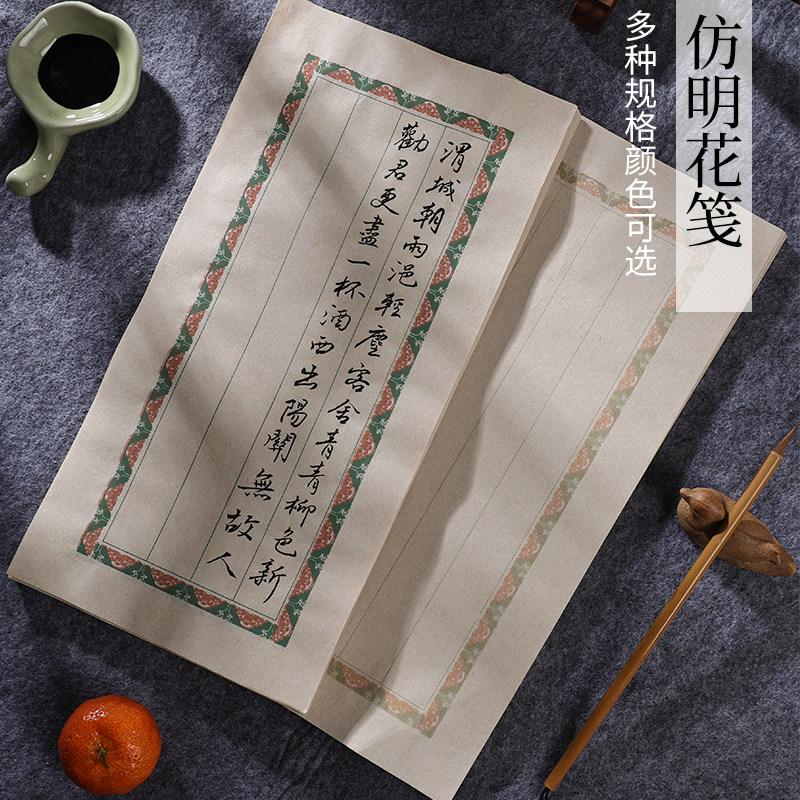 仿明花笺
多种规格颜色可选
渭城朝雨浥輕塵客舍青青柳色新
勸君更盡一杯酒西出陽關無故人